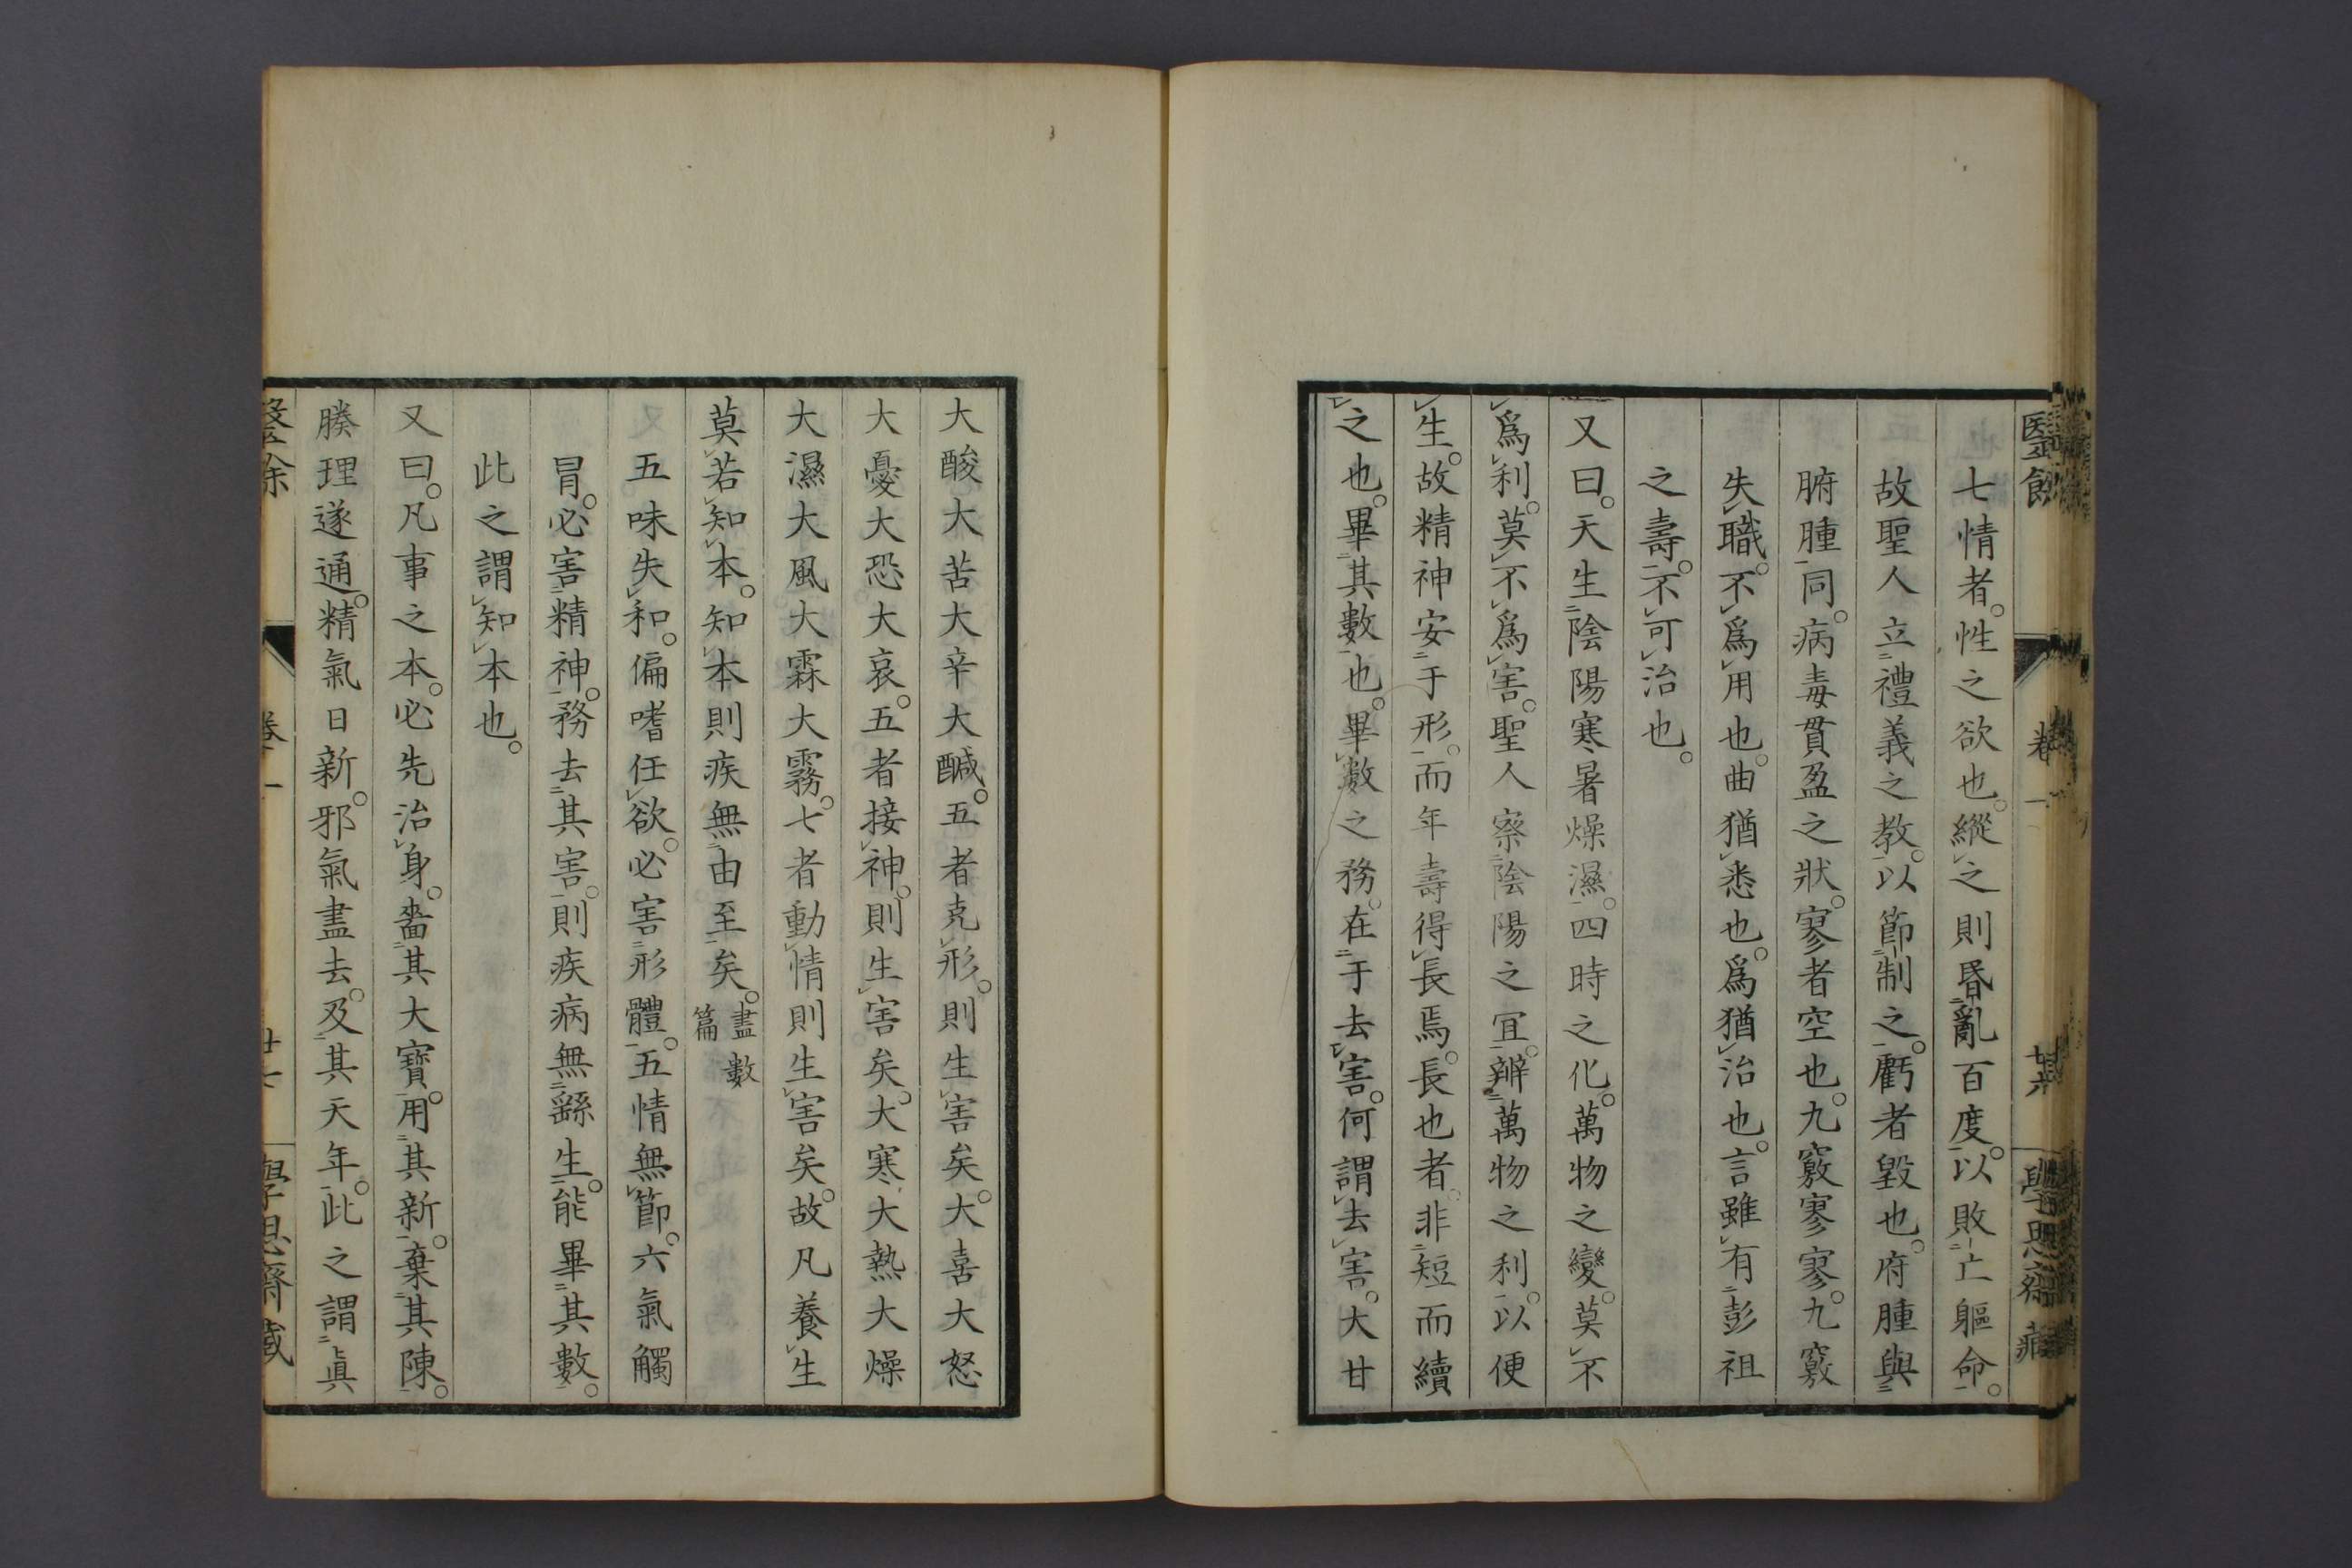 醫餘 卷一 廿六 學思齋藏
七情者。性之欲也。縱之則昬亂百度。以敗亡軀命。
故聖人立禮義之教。以節制之。虧者毀也。府腫與
腑腫同。病毒貫盈之狀。寥者空也。九竅寥寥。九竅
失職。不爲用也。曲猶悉也。爲猶治也。言雖有彭祖
之壽。不可治也。
又曰。天生陰陽寒暑燥濕。四時之化。萬物之變。莫不
爲利。莫不爲害。聖人察陰陽之宜。辨萬物之利。以便
生。故精神安于形。而年壽得長焉。長也者。非短而續
之也。畢其數也。畢數之務。在于去害。何謂去害。大甘
大酸大苦大辛大醎。五者克形。則生害矣。大喜大怒
大憂大恐大哀。五者接神。則生害矣。大寒大熱大燥
大濕大風大霖大霧。七者動情則生害矣。故凡養生
莫若知本。知本則疾無由至矣。盡數篇
五味失和。偏嗜任欲。必害形體。五情無節。六氣觸
冒。必害精神。務去其害。則疾病無繇生。能畢其數。
此之謂知本也。
又曰。凡事之本。必先治身。嗇其大寶。用其新。棄其陳。
腠理遂通。精氣日新。邪氣盡去。及其天年。此之謂眞
醫餘 卷一 廿七 學思齋藏